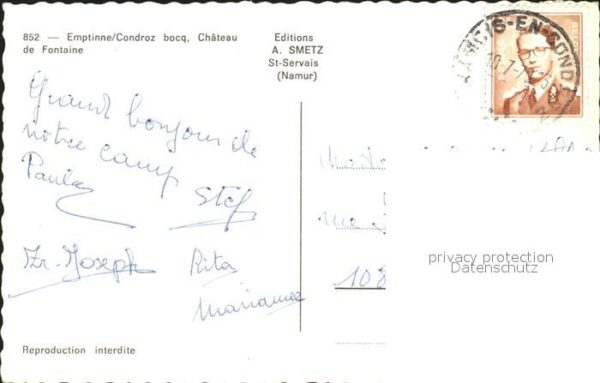 852 — Emptinne/Condroz bocq, Château
de Fontaine
Editions
A. SMETZ
St-Servais
(Namur)
Grand bonjour de
notre camp
Stef
Fr. Joseph
Rita
Marianne
Reproduction interdite
BELGIE
10-7-7
108
privacy protection
Datenschutz